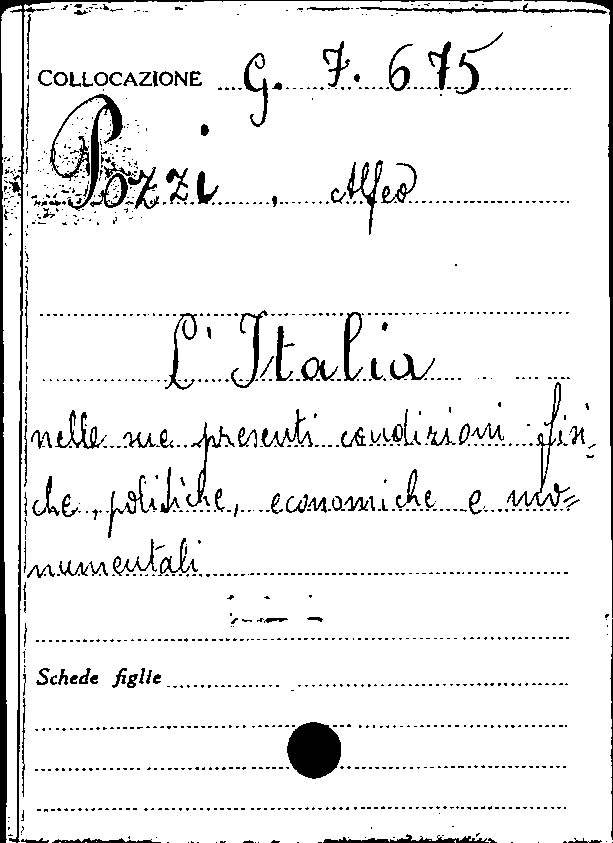 COLLOCAZIONE G. 7. 675
Pozzi, Alfeo
L'Italia
nelle sue presenti condizioni fisi-
che, politiche, economiche e mo=
numentali
Schede figlie